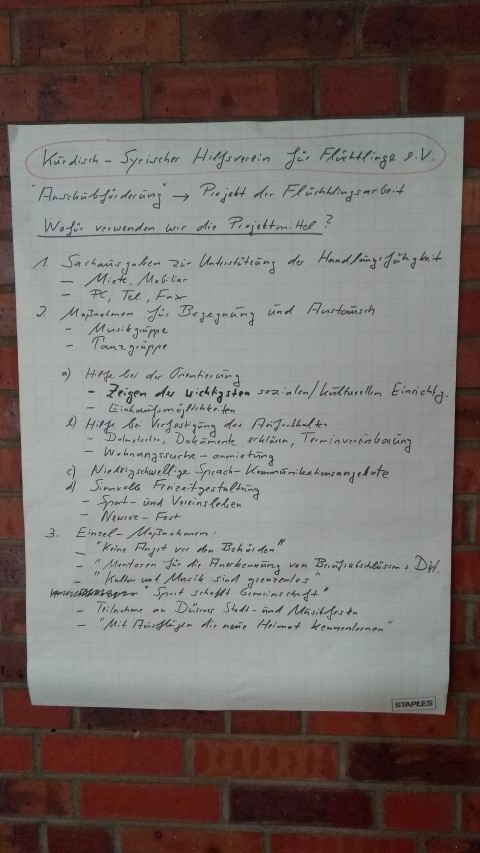 Kurdisch - Syrischer Hilfsverein für Flüchtlinge e.V.
"Anschubförderung" → Projekt der Flüchtlingsarbeit
Wofür verwenden wir die Projektmittel?
1. Sachausgaben zur Unterstützung der Handlungsfähigkeit
- Miete, Mobiliar
- PC, Tel, Fax
2. Maßnahmen für Begegnung und Austausch
- Musikgruppe
- Tanzgruppe
a) Hilfe bei der Orientierung
- Zeigen der wichtigsten sozialen/kulturellen Einrichtg.
- Einkaufsmöglichkeiten
b) Hilfe bei Verfestigung des Aufenthaltes
- Dolmetscher, Dokumente erklären, Terminvereinbarung
- Wohnungssuche - anmietung
c) Niedrigschwellige Sprach-Kommunikationsangebote
d) Sinnvolle Freizeitgestaltung
- Sport- und Vereinsleben
- Newroz - Fest
3. Einzel-Maßnahmen:
- "Keine Angst vor den Behörden"
- "Mentoren für die Anerkennung von Berufsabschlüssen
- "Kultur und Musik sind grenzenlos"
"Sport schafft Gemeinschaft"
- Teilnahme an Dürener Stadt- und Musikfesten
- "Mit Ausflügen die neue Heimat kennenlernen"
STAPLES